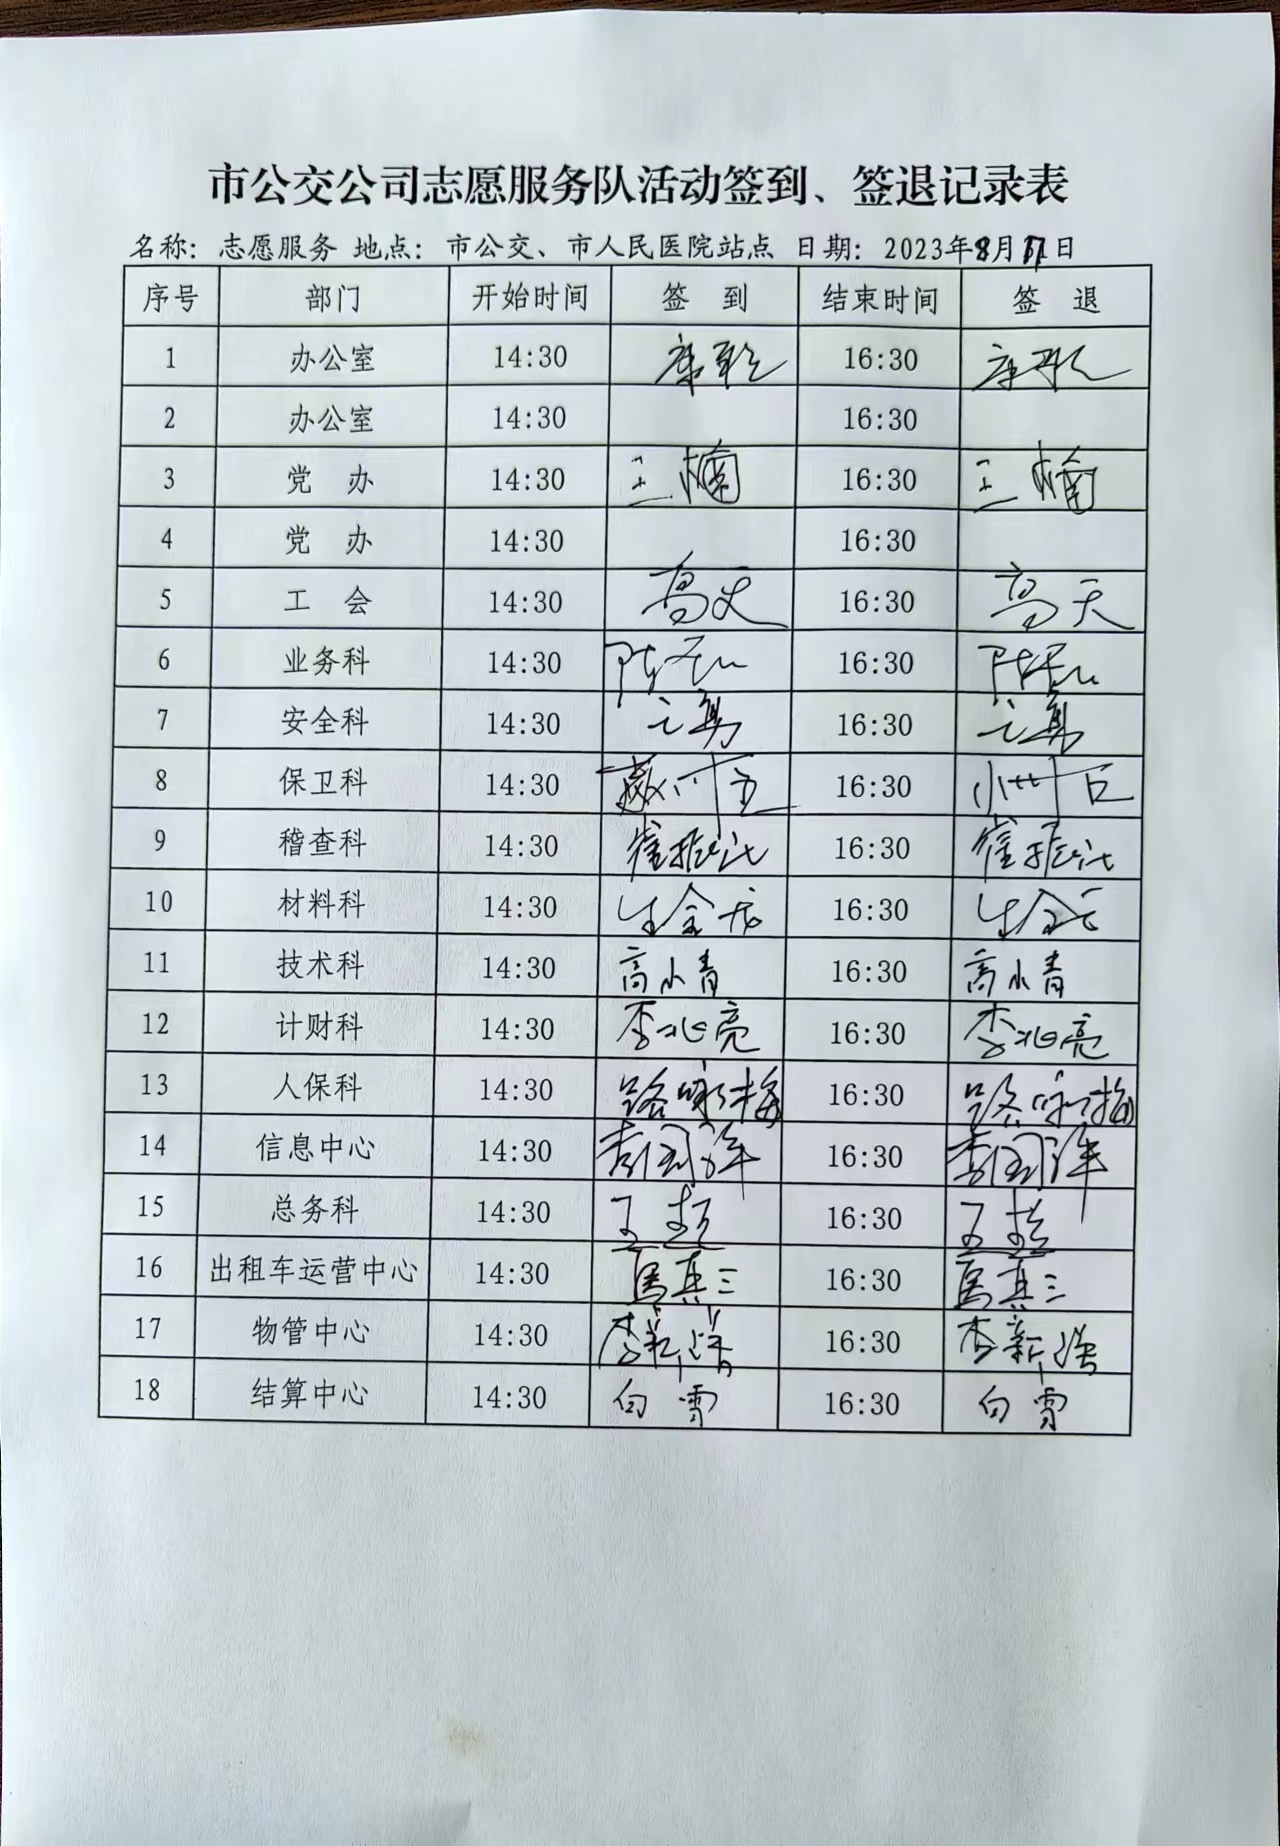 市公交公司志愿服务队活动签到、签退记录表
名称：志愿服务 地点：市公交、市人民医院站点 日期：2023年8月11日
序号 部门 开始时间 签 到 结束时间 签 退
1 办公室 14:30 16:30
2 办公室 14:30 16:30
3 党 办 14:30 王楠 16:30 王楠
4 党 办 14:30 16:30
5 工 会 14:30 高天 16:30 高天
6 业务科 14:30 16:30
7 安全科 14:30 16:30
8 保卫科 14:30 16:30
9 稽查科 14:30 16:30
10 材料科 14:30 16:30
11 技术科 14:30 高小青 16:30 高小青
12 计财科 14:30 李兆亮 16:30 李兆亮
13 人保科 14:30 路咏梅 16:30 路咏梅
14 信息中心 14:30 16:30
15 总务科 14:30 16:30
16 出租车运营中心 14:30 16:30
17 物管中心 14:30 16:30
18 结算中心 14:30 白雪 16:30 白雪